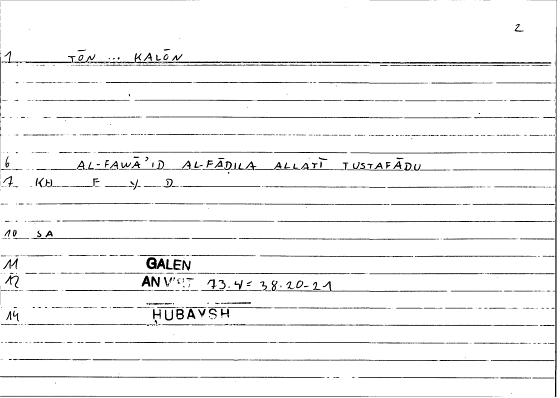 2
1 TŌN ... KALŌN
6 AL-FAWĀʾID AL-FĀḌILA ALLATĪ TUSTAFĀDU
7 KH F Y D
10 SA
11 GALEN
12 AN VIRT 73.4 = 38.20-21
14 ḤUBAYSH